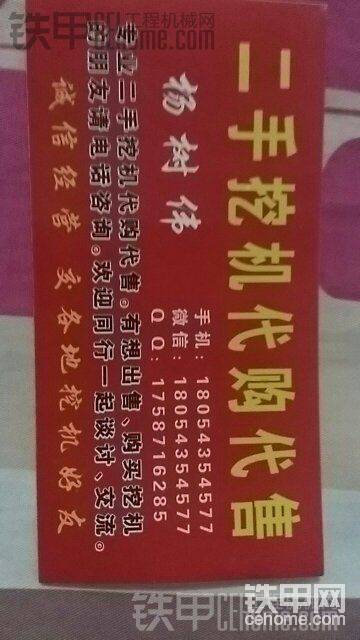 二手挖机代购代售
杨树伟
手机：18054354577
微信：18054354577
QQ：1758716285
专业二手挖机代购代售。有想出售、购买挖机
的朋友请电话咨询。欢迎同行一起谈讨、交流。
诚信经营 交各地挖机好友
铁甲工程机械网
cehome.com
铁甲网
cehome.com